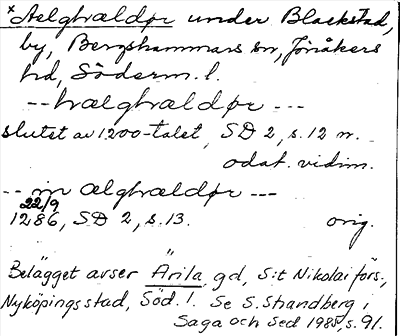 × Aelghældør under Blackstad,
by, Bergshammars sn, Jönåkers
hd, Söderm. l.
-- hælghældør ---
slutet av 1200-talet, SD 2, s. 12 n.
odat. vidim.
-- in ælghældør ---
22/9
1286, SD 2, s. 13. orig.
Belägget avser Ärila gd, S:t Nikolai förs.,
Nyköpings stad, Söd. l. Se S. Strandberg i
Saga och Sed 1985, s. 91.